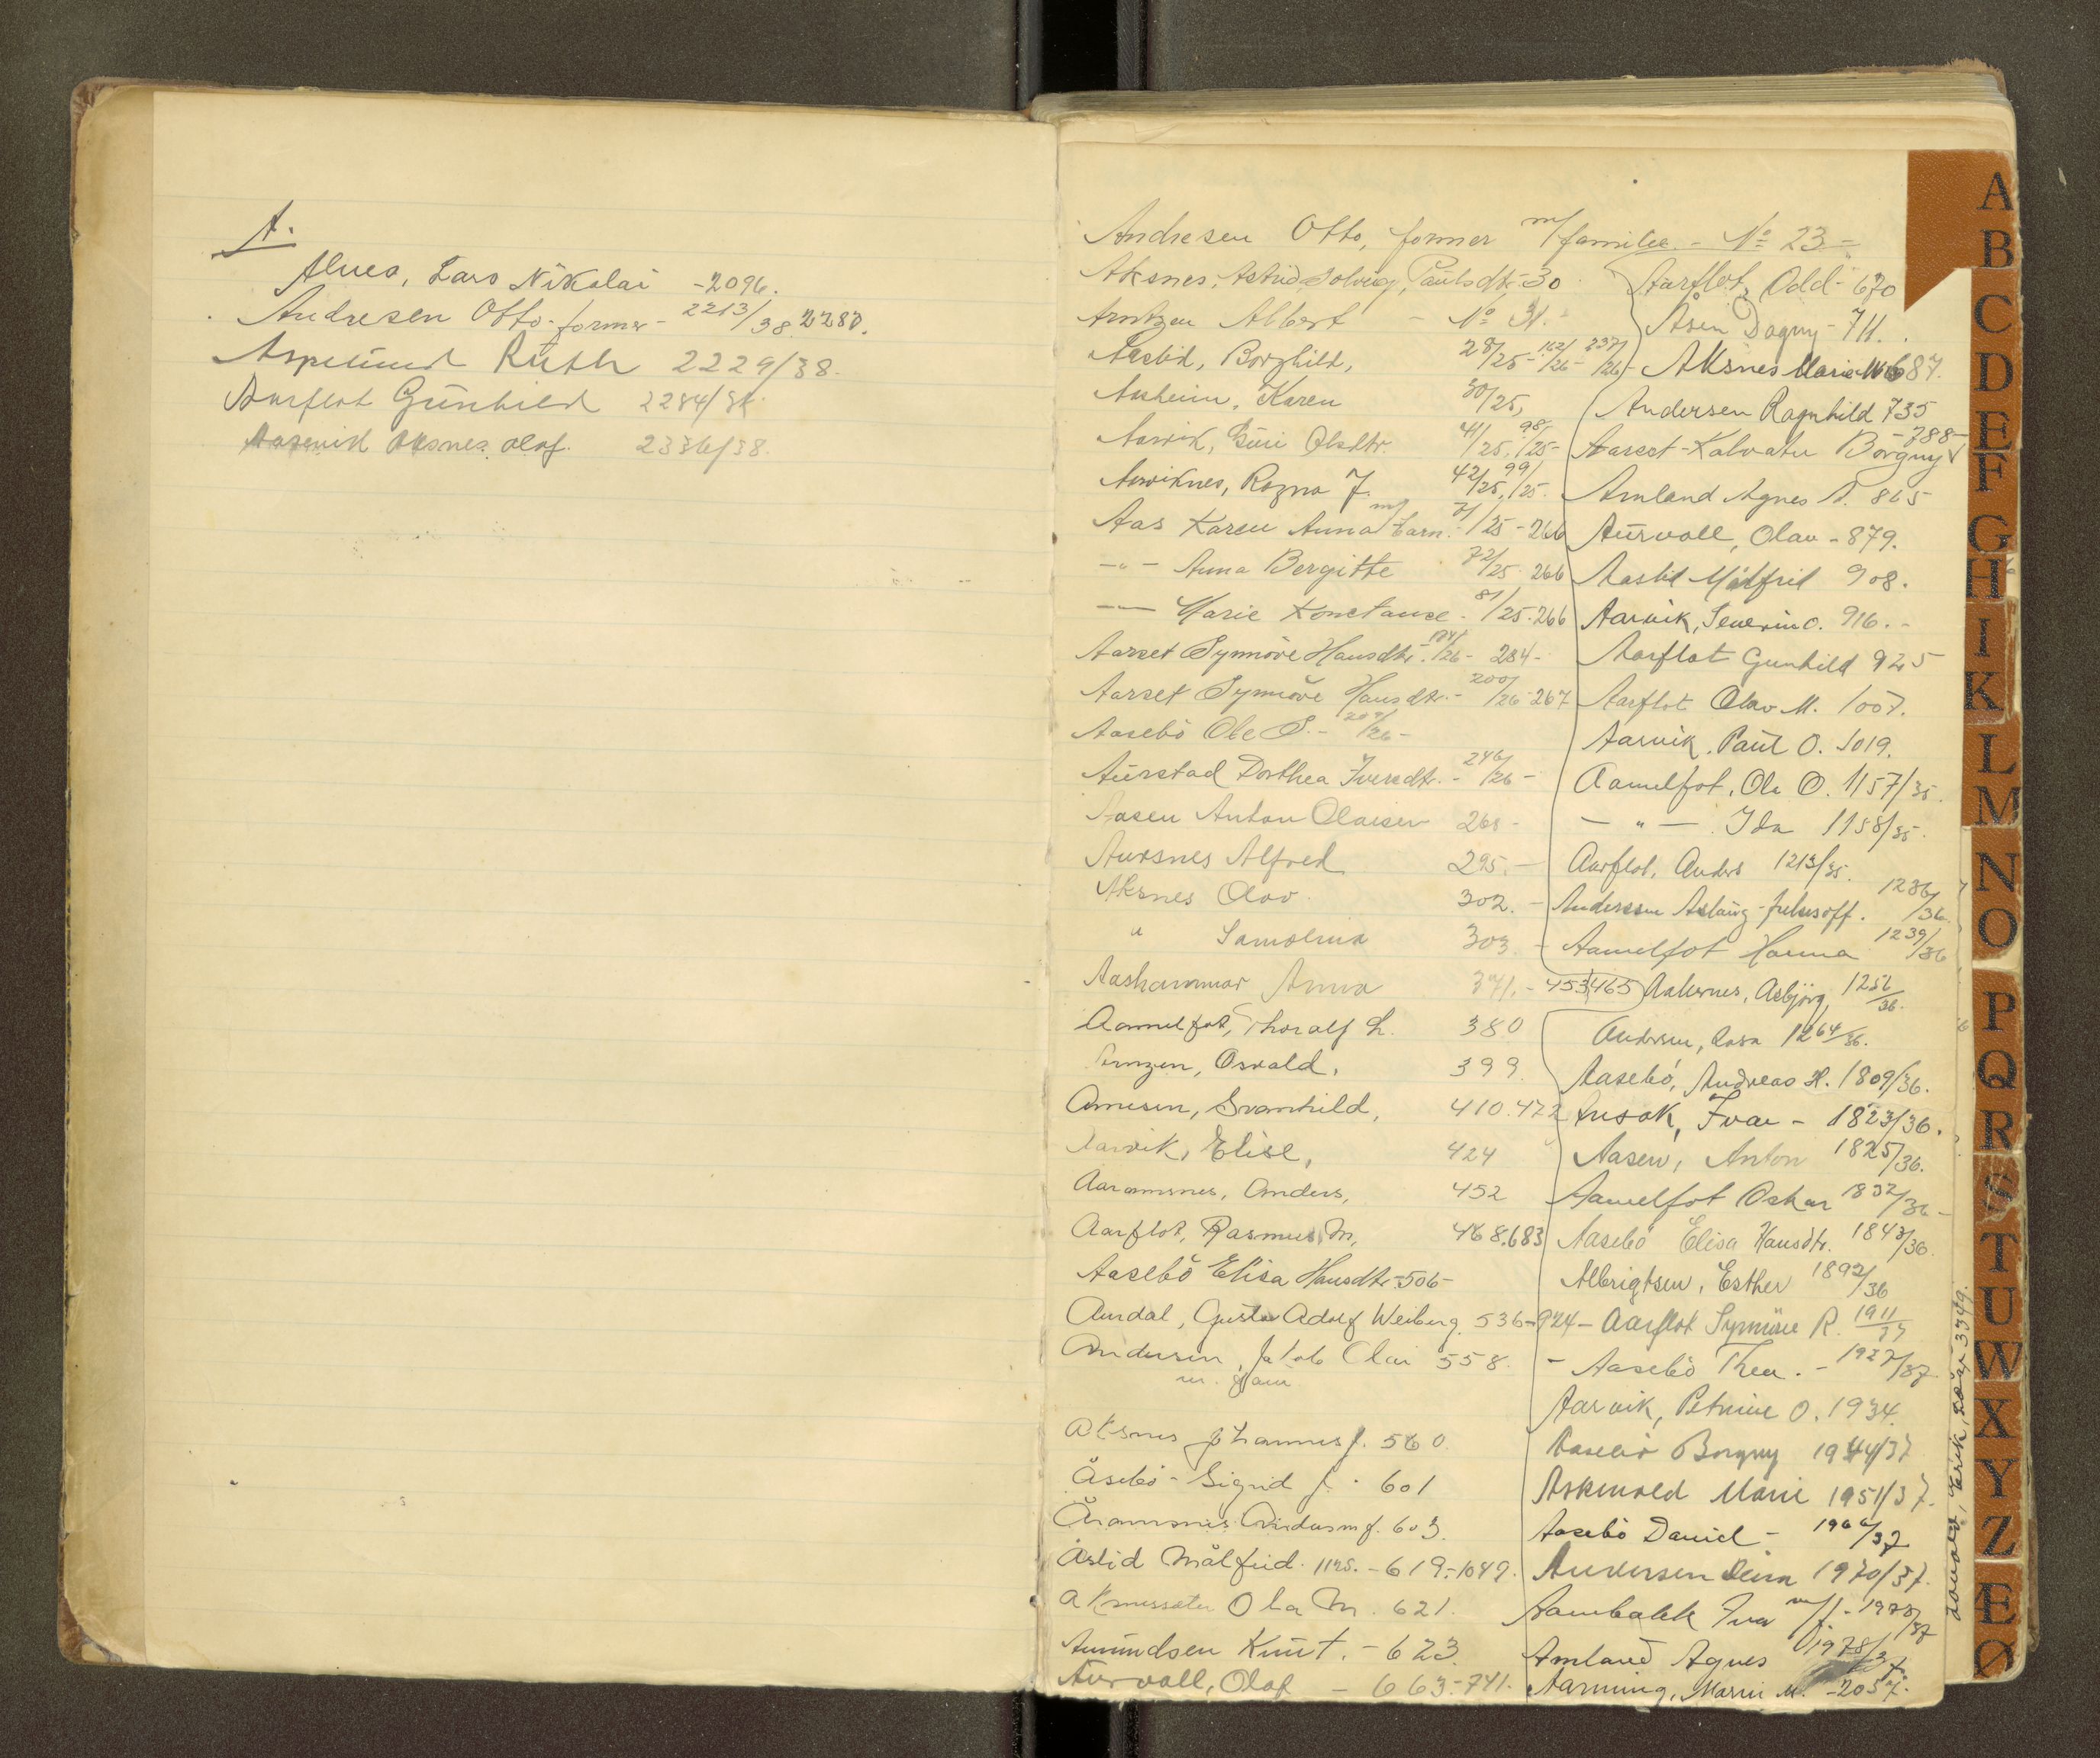 A.
Alnes, Lars Nikolai - 2096.
Andresen Otto - former - 2213/38. 2280.
Ruth 2229/38.
Aarflot Gunhild 2284/38.
Aksnes Olaf. 2336/38.
Andresen Otto, former m/familie - No 23 =
Aksnes, Astrid Solveig, Paulsdtr. - 30
Arntzen Albert - No 31.
Aaslid, Borghild, 28/25 - 162/26 - 237/26 -
Aasheim, Karen 30/25,
Aarvik, Guri Olsdtr. 41/25. 98/25 -
Aarviknes, Ragna J. 42/25, 99/25.
Aas Karen Anna m/barn. 71/25 - 266
- " - Anna Bergitte 72/25. 266
- " - Marie Konstanse - 81/25. 266
Aarset Synnöve Hansdtr. 184/26 - 284 -
Aarset Synnöve Hansdtr. - 200/26 - 267
Aasebö Ole S. - 209/26 -
Aurstad Dorthea Iversdtr. - 246/26 -
Aasen Anton Olaisen 268 -
Aursnes Alfred 295. -
Aksnes Olav 302. -
" 303. -
Aashammar Anna 341. - 453, 465
Aamelfot, Thoralf L. 380
Osvald, 399.
Arnesen, Svanhild, 410. 472
Aarvik, Elise, 424
Aaramsnes, Anders, 452
Aarflot, Rasmus M, 468. 683
Aasebö Elisa Hansdtr. - 506 -
Aurdal, Gustav Adolf Weiberg 536 - 924 -
Andersen, Jakob Olai 558.
m. fam
Aksnes Johannes J. 560.
Åsebö - Sigrid J. - 601
Åramsnes Anders m f. 603.
Åslid Målfrid. - 619. - 1049.
Ola M. 621.
Amundsen Knut. - 623.
Aurvoll, Olaf - 663. - 741.
Aarflot, Odd - 670
Åsen Dagny - 711.
Aksnes Marie 687.
Andersen Ragnhild 735
Aarset - Kalvatn Borgny - 788 -
Amland Agnes A. 865
Aurvoll, Olav - 879.
Aaslid Målfrid 908.
Aarvik, Severin O. 916. -
Aarflot Gunhild 925
Aarflot Olav M. 1007.
Aarvik, Paul O. 1019.
Aamelfot, Ole O. 1157/35.
- " - Ida 1158/35.
Aarflot, Anders 1213/35.
Anderssen Aslaug - frelsesoff. 1236/36.
Aamelfot Hanna 1239/36
Aakernes, Asbjörg, 1256/36.
Andersen, 1264/36.
Aasebö, Andreas H. 1809/36.
Ansok, Ivar - 1823/36.
Aasen, Anton 1825/36.
Aamelfot Oskar 1832/36 -
Aasebö Elisa Hansdtr. 1843/36.
Albrigtsen, Esther 1892/36
Aarflot Synnöve R. 1911/37
- Aasebö Thea. - 1927/37
Aarvik, Petrine O. 1934.
Aasebö Borgny 1944/37
Askevold Marie 1951/37.
Aasebö David - 1966/37
Andersen 1970/37.
m/f. - 1973/37
Amland Agnes 1978/37.
Marie M. - 2057.
Erik, 3349.
A
B
C
D
E
F
G
H
I
K
L
M
N
O
P
Q
R
S
T
U
W
X
Y
Z
Æ
Ø